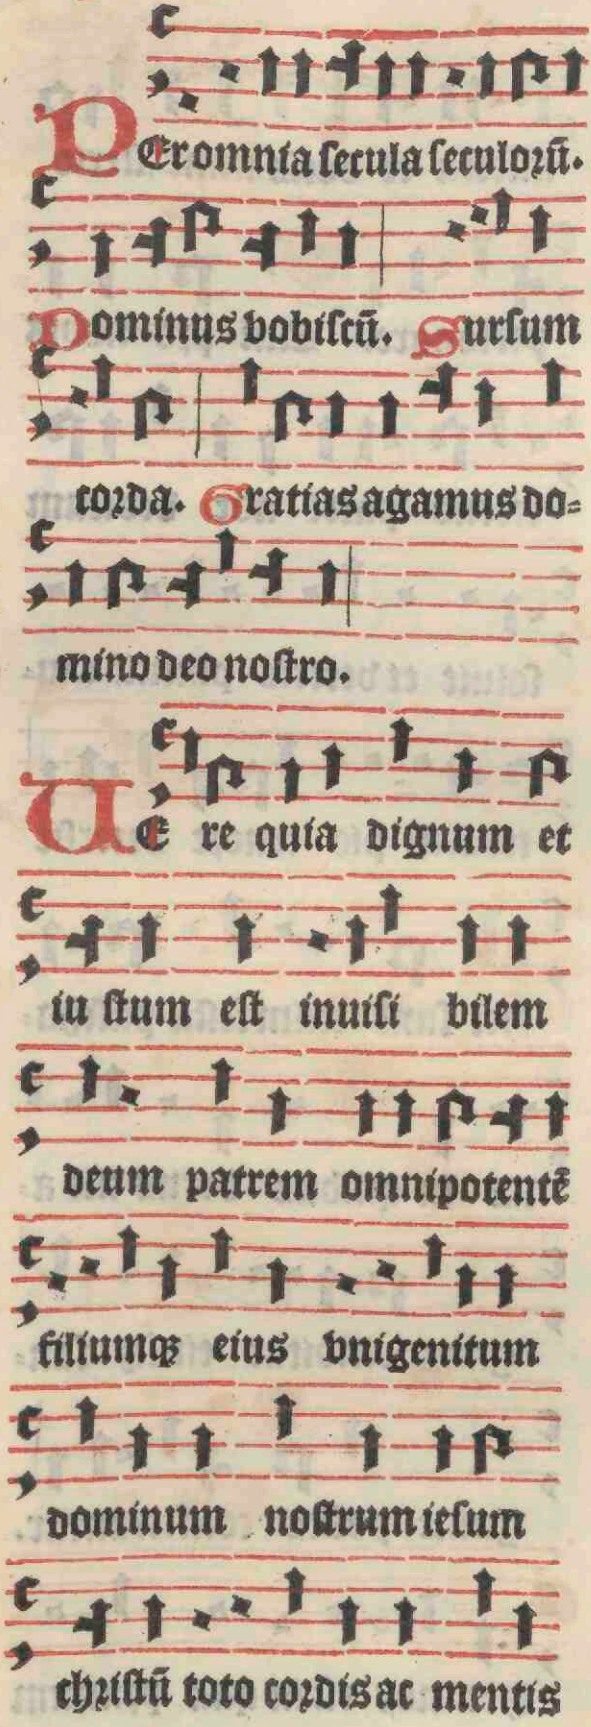 PEr omnia secula seculorū.
Dominus vobiscū. Sursum
corda. Gratias agamus do⸗
mino deo nostro.
VE re quia dignum et
iu stum est inuisi bilem
deum patrem omnipotentē
filiumqꝫ eius vnigenitum
dominum nostrum iesum
christū toto cordis ac mentis